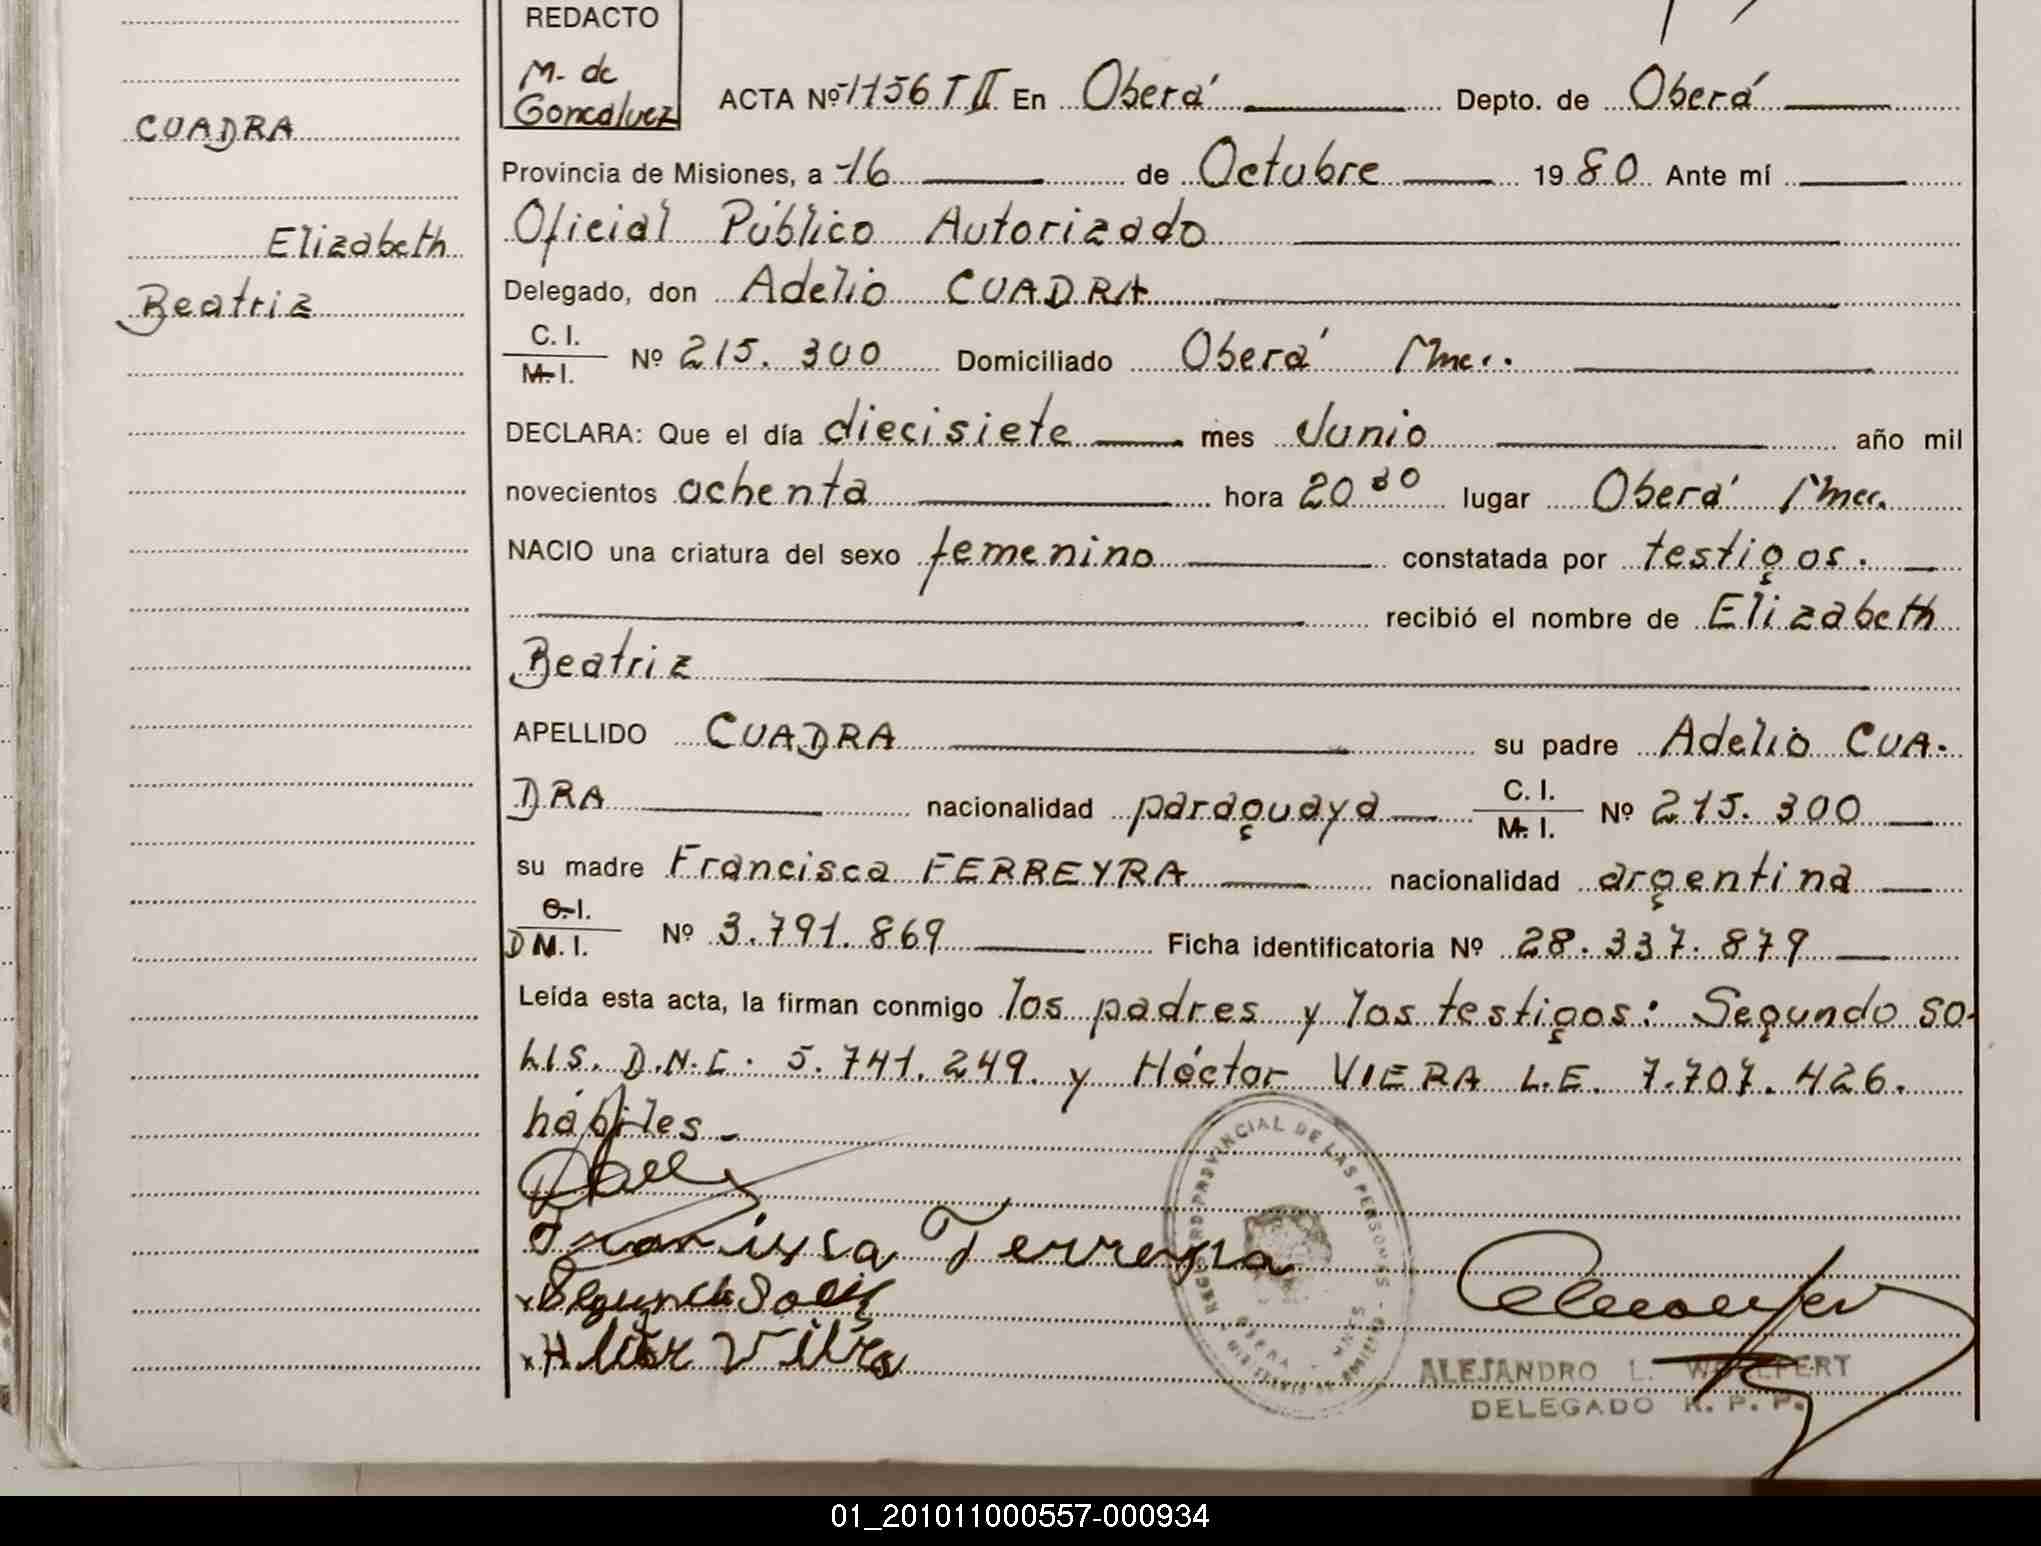 REDACTO
M. de
Goncalvez
CUADRA
Elizabeth
Beatriz
ACTA Nº 1156 T II En Oberá Depto. de Oberá
Provincia de Misiones, a 16 de Octubre 1980 Ante mí
Oficial Público Autorizado
Delegado, don Adelio CUADRA
C. I.
M. I. Nº 215.300 Domiciliado Oberá Mnes.
DECLARA: Que el día diecisiete mes Junio año mil
novecientos ochenta hora 20 30 lugar Oberá Mnes.
NACIO una criatura del sexo femenino constatada por testigos.
recibió el nombre de Elizabeth
Beatriz
APELLIDO CUADRA su padre Adelio CUA-
DRA nacionalidad paraguaya C. I.
M. I. Nº 215.300
su madre Francisca FERREYRA nacionalidad argentina
C. I.
D M. I. Nº 3.791.869 Ficha identificatoria Nº 28.337.879
Leída esta acta, la firman conmigo los padres y los testigos: Segundo SO-
LIS. D.N.I. 5.741.249. y Héctor VIERA L.E. 7.707.426.
hábiles.-
Francisca Ferreyra
Segundo Solis
PROVINCIAL DE LAS PERSONAS
ALEJANDRO L.
DELEGADO R. P. P.
01_201011000557-000934